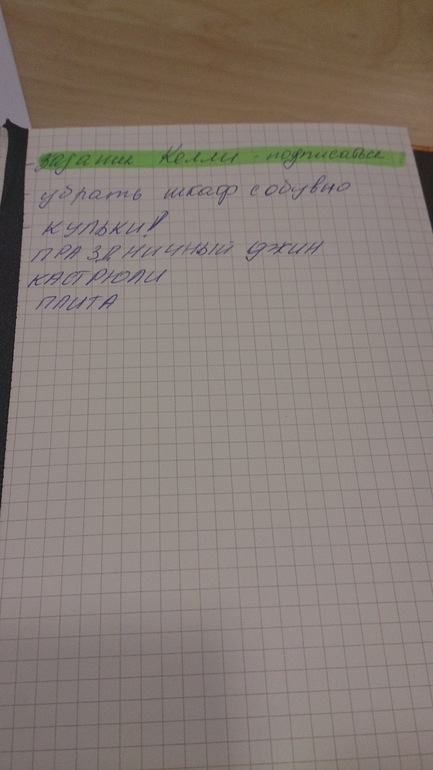 - задание Келли - подписаться
- убрать шкаф с обувью
КУЛЬКИ!
ПРАЗДНИЧНЫЙ УЖИН
КАСТРЮЛИ
ПЛИТА